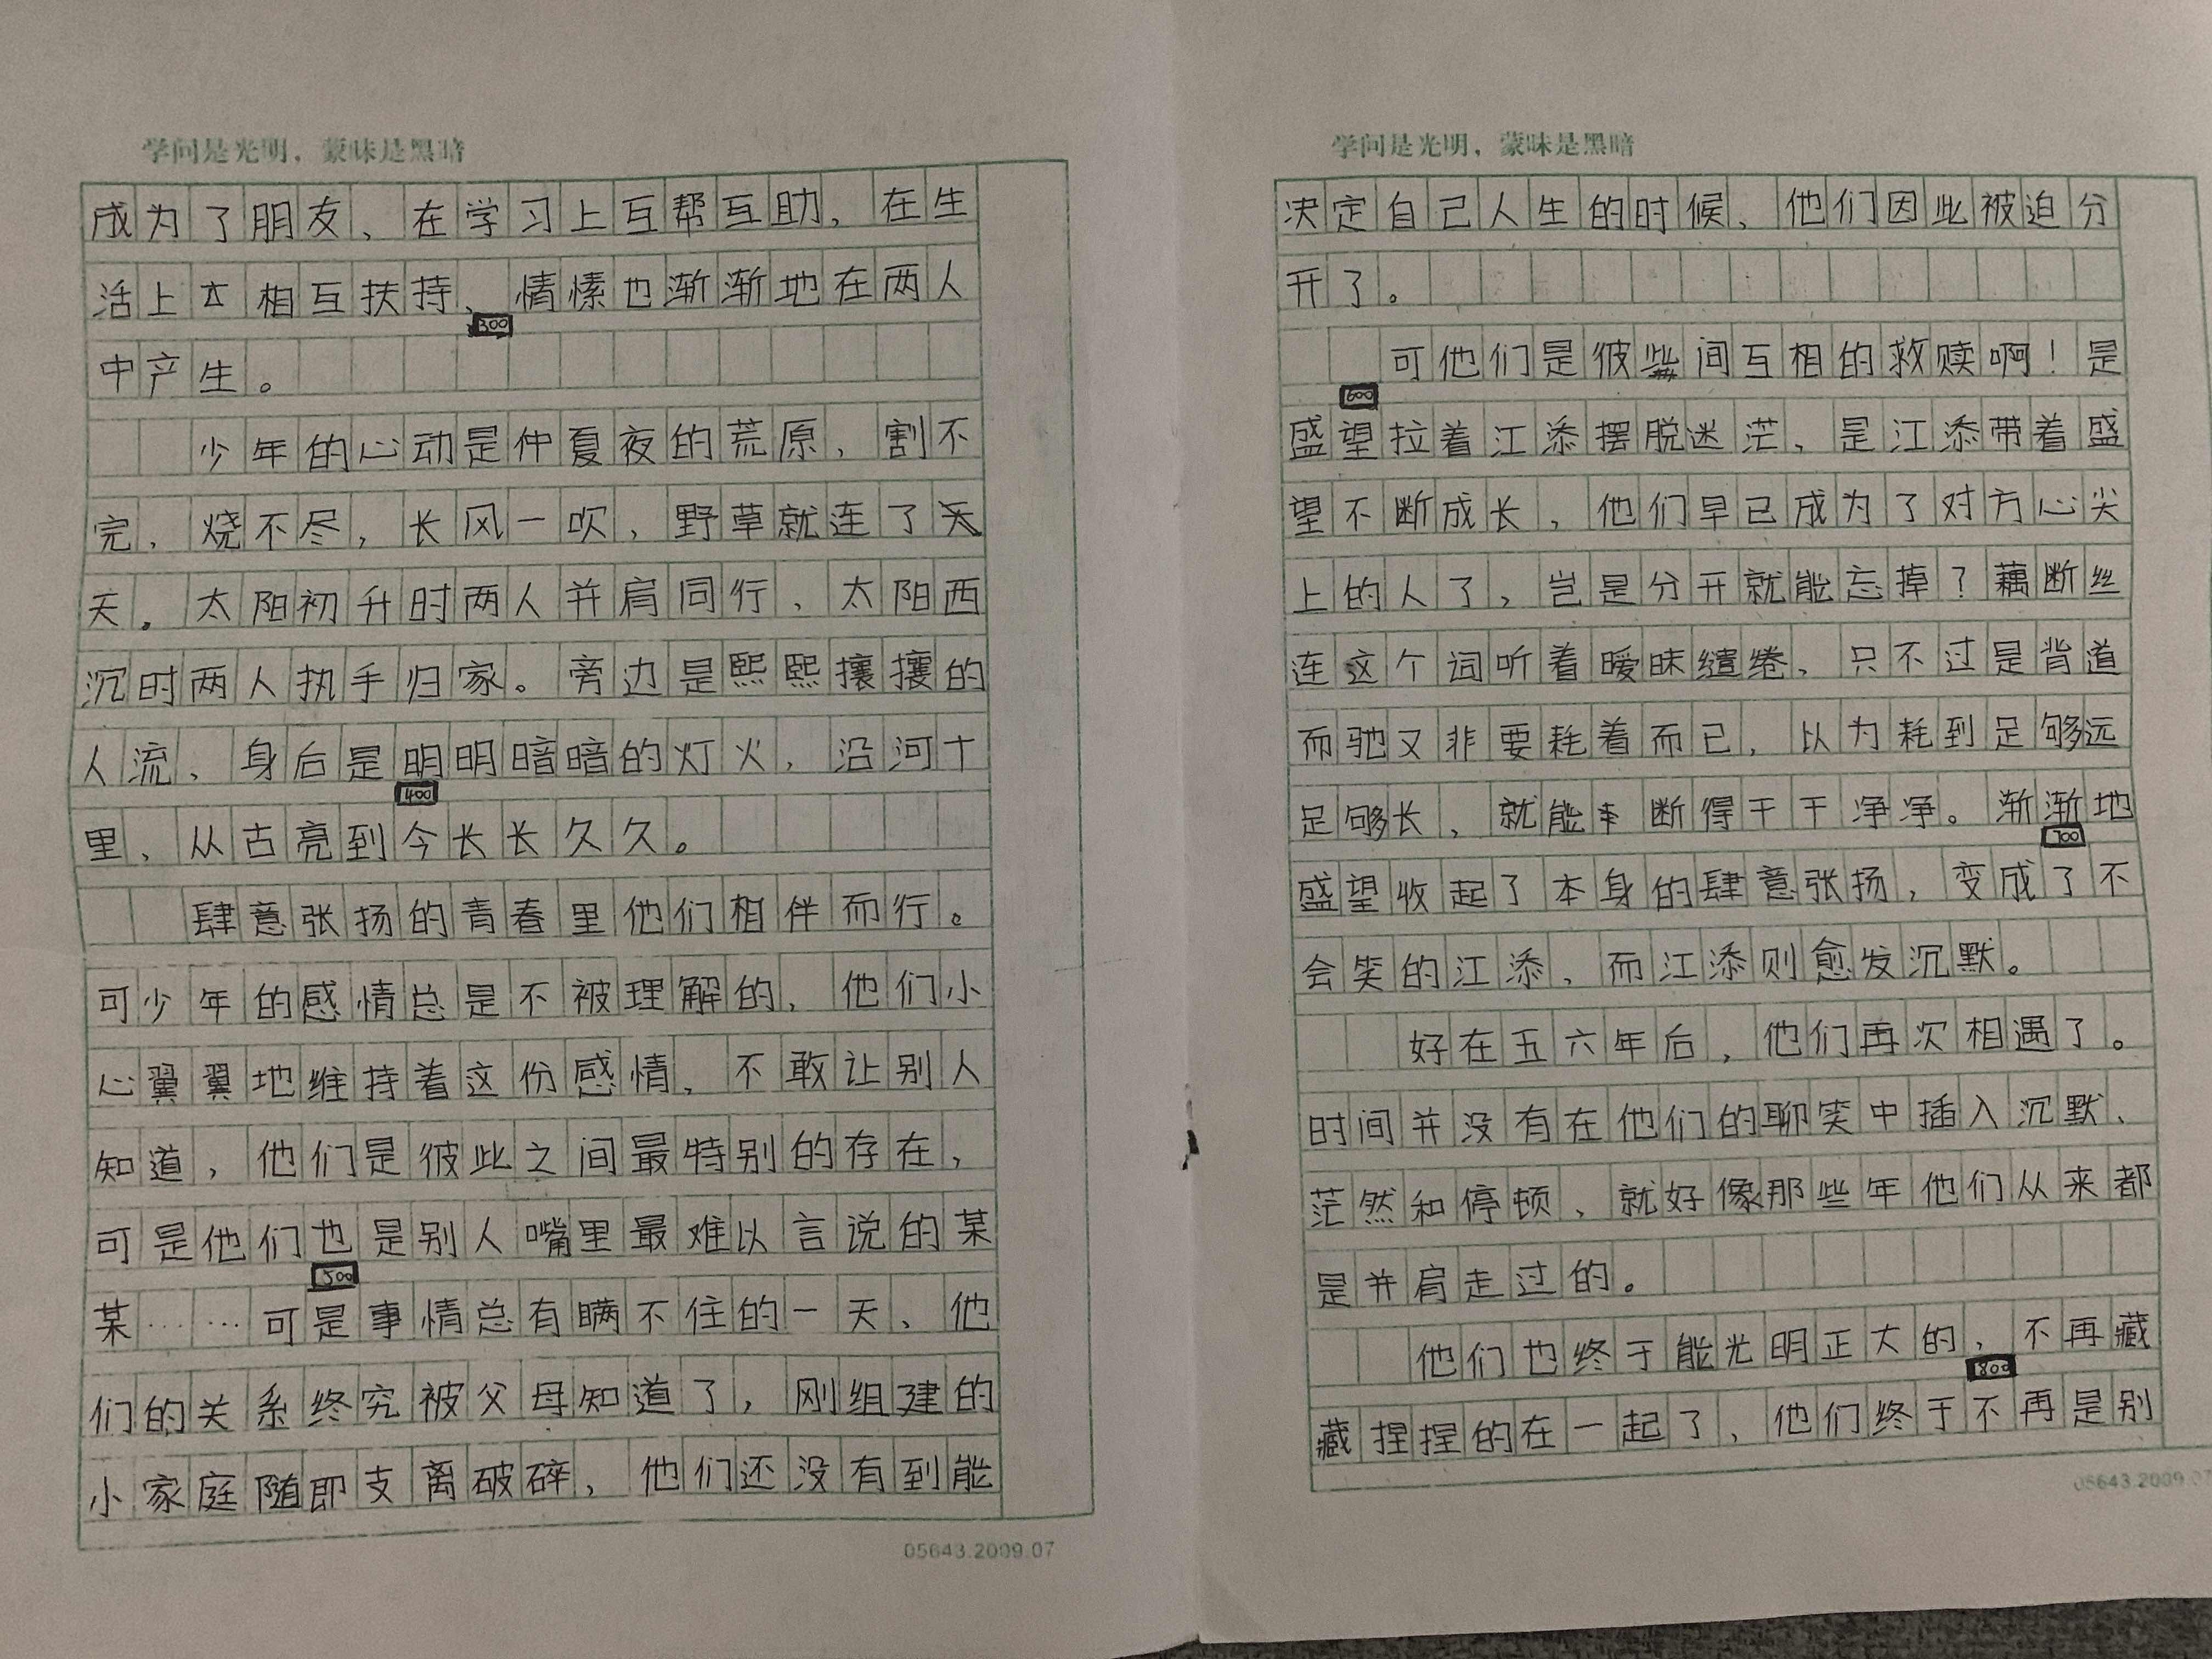 学问是光明，蒙昧是黑暗
成为了朋友、在学习上互帮互助，在生
活上相互扶持、情愫也渐渐地在两人
300
中产生。
少年的心动是仲夏夜的荒原，割不
完，烧不尽，长风一吹，野草就连了天
天。太阳初升时两人并肩同行、太阳西
沉时两人执手归家。旁边是熙熙攘攘的
人流、身后是明明暗暗的灯火，沿河十
400
里、从古亮到今长长久久。
肆意张扬的青春里他们相伴而行。
可少年的感情总是不被理解的，他们小
心翼翼地维持着这份感情，不敢让别人
知道，他们是彼此之间最特别的存在，
可是他们也是别人嘴里最难以言说的某
500
某……可是事情总有瞒不住的一天、他
们的关系终究被父母知道了，刚组建的
小家庭随即支离破碎，他们还没有到能
05643.2009.07
学问是光明，蒙昧是黑暗
决定自己人生的时候、他们因此被迫分
开了。
可他们是彼此间互相的救赎啊！是
600
盛望拉着江添摆脱迷茫、是江添带着盛
望不断成长，他们早已成为了对方心尖
上的人了，岂是分开就能忘掉？藕断丝
连这个词听着暧昧缱绻、只不过是背道
而驰又非要耗着而已，以为耗到足够远
足够长，就能断得干干净净。渐渐地
700
盛望收起了本身的肆意张扬，变成了不
会笑的江添、而江添则愈发沉默。
好在五六年后，他们再次相遇了。
时间并没有在他们的聊笑中插入沉默、
茫然和停顿、就好像那些年他们从来都
是并肩走过的。
他们也终于能光明正大的，不再藏
800
藏捏捏的在一起了、他们终于不再是别
05643.2009.07